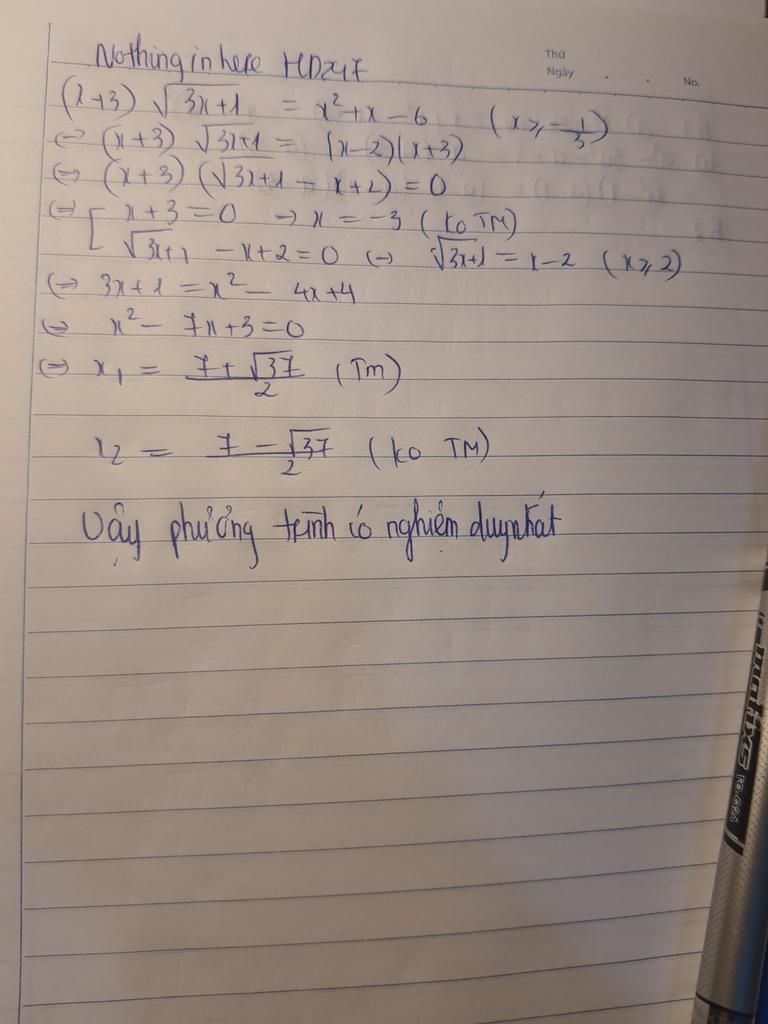 Nothing in here HD247
Thứ
Ngày . . No.
(x+3) √3x+1 = x² + x − 6 (x ⩾ −1/3)
⇔ (x+3) √3x+1 = (x−2)(x+3)
⇔ (x+3) (√3x+1 − x+2) = 0
⇔ [ x+3 = 0 → x = −3 (ko TM)
√3x+1 − x+2 = 0 ⇔ √3x+1 = x−2 (x ⩾ 2)
⇔ 3x+1 = x² − 4x+4
⇔ x² − 7x+3 = 0
⇔ x₁ = 7+√37/2 (Tm)
x₂ = 7−√37/2 (ko TM)
Vậy phương trình có nghiệm duy nhất
FO-G24